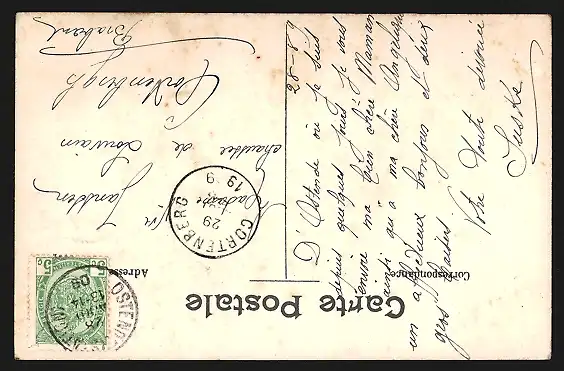 Carte Postale
Correspondance
Adresse
28-8
D'Ostende où je suis
depuis quelques jours je vous
envoie ma bien chère Maman
ainsi qu'à ma chère
un affectueux bonjour et deux
gros baisers
Votre toute dévouée
Madame
Janssen
chaussée de Louvain
Cortenbergh
Brabant
CORTENBERG
29
19 9
OSTENDE
5c 5c